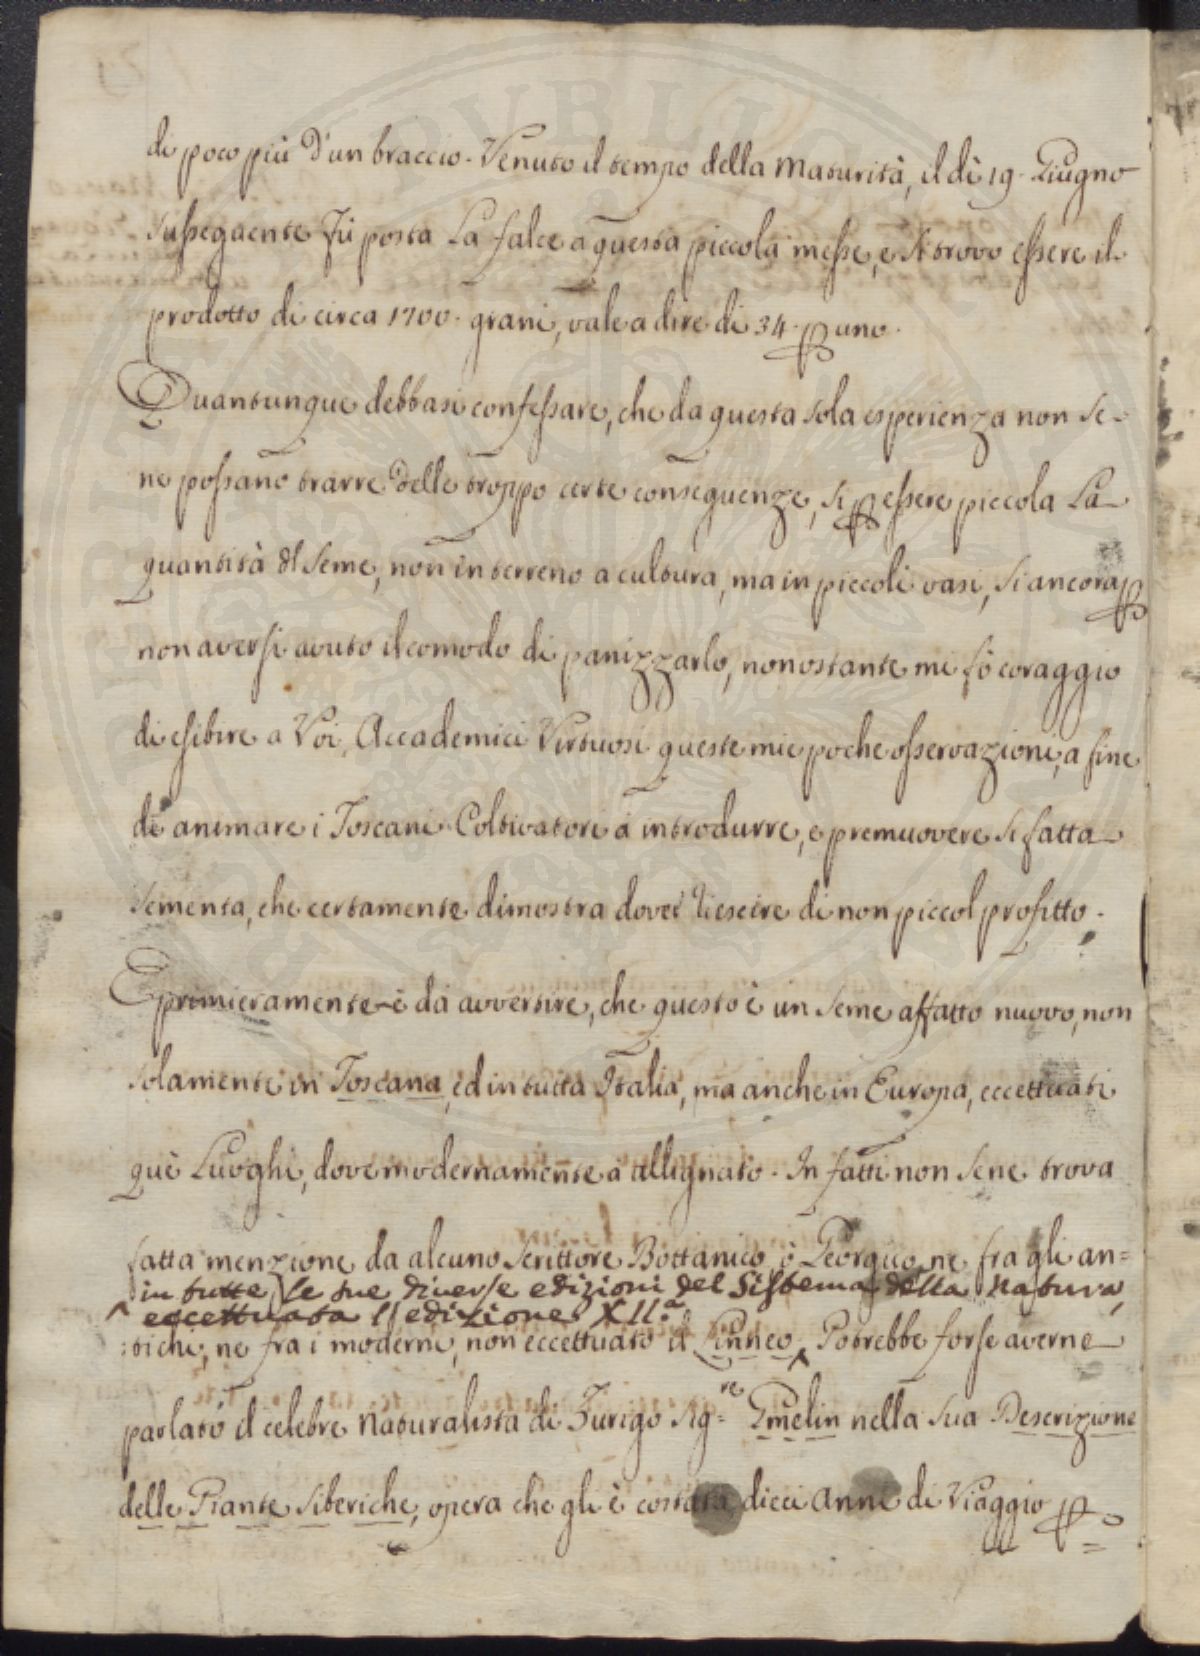 di poco più d'un braccio. Venuto il tempo della Maturità, il dì 19. Giugno
susseguente fù posta La falce a questa piccola messe, e si trovo essere il
prodotto di circa 1700. grani, vale a dire di 34. p uno.
Quantunque debbasi confessare, che da questa sola esperienza non se=
ne possano trarre delle troppo certe conseguenze, sì p essere piccola La
quantità dl Seme, non in terreno a cultura, ma in piccoli vasi, si ancora p
non aversi avuto il comodo di panizzarlo, nonostante mi fò coraggio
di esibire a Voi, Accademici Virtuosi queste mie poche osservazioni, a fine
di animare i Toscani Coltivatori à introdurre, e premuovere si fatta
sementa, che certamente dimostra dover riescire di non piccol profitto.
E primieramente è da avvertire, che questo è un seme affatto nuovo, non
solamente in Toscana, ed in tutta Italia, ma anche in Europa, eccettuati
què Luoghi, dove modernamente à allignato. In fatti non sene trova
fatta menzione da alcuno Scrittore Bottanico, ò Georgico, ne fra gli an=
in tutte le sue diverse edizioni del Sistema della Natura,
^ eccettuata l'edizione XII.a
:tichi, ne fra i moderni, non eccettuato il Linneo ^. Potrebbe forse averne
parlato il celebre Naturalista di Turigo Sig:re Gmelin nella Sua Descrizione
delle Piante Siberiche, opera che gli è costata dieci anni di Viaggio p=